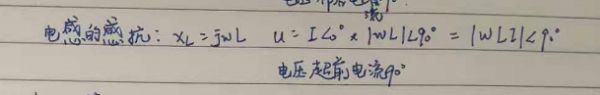 流
电感的感抗: XL = jwL u = I∠0° × |wL|∠90° = |wLI|∠90°
电压超前电流90°